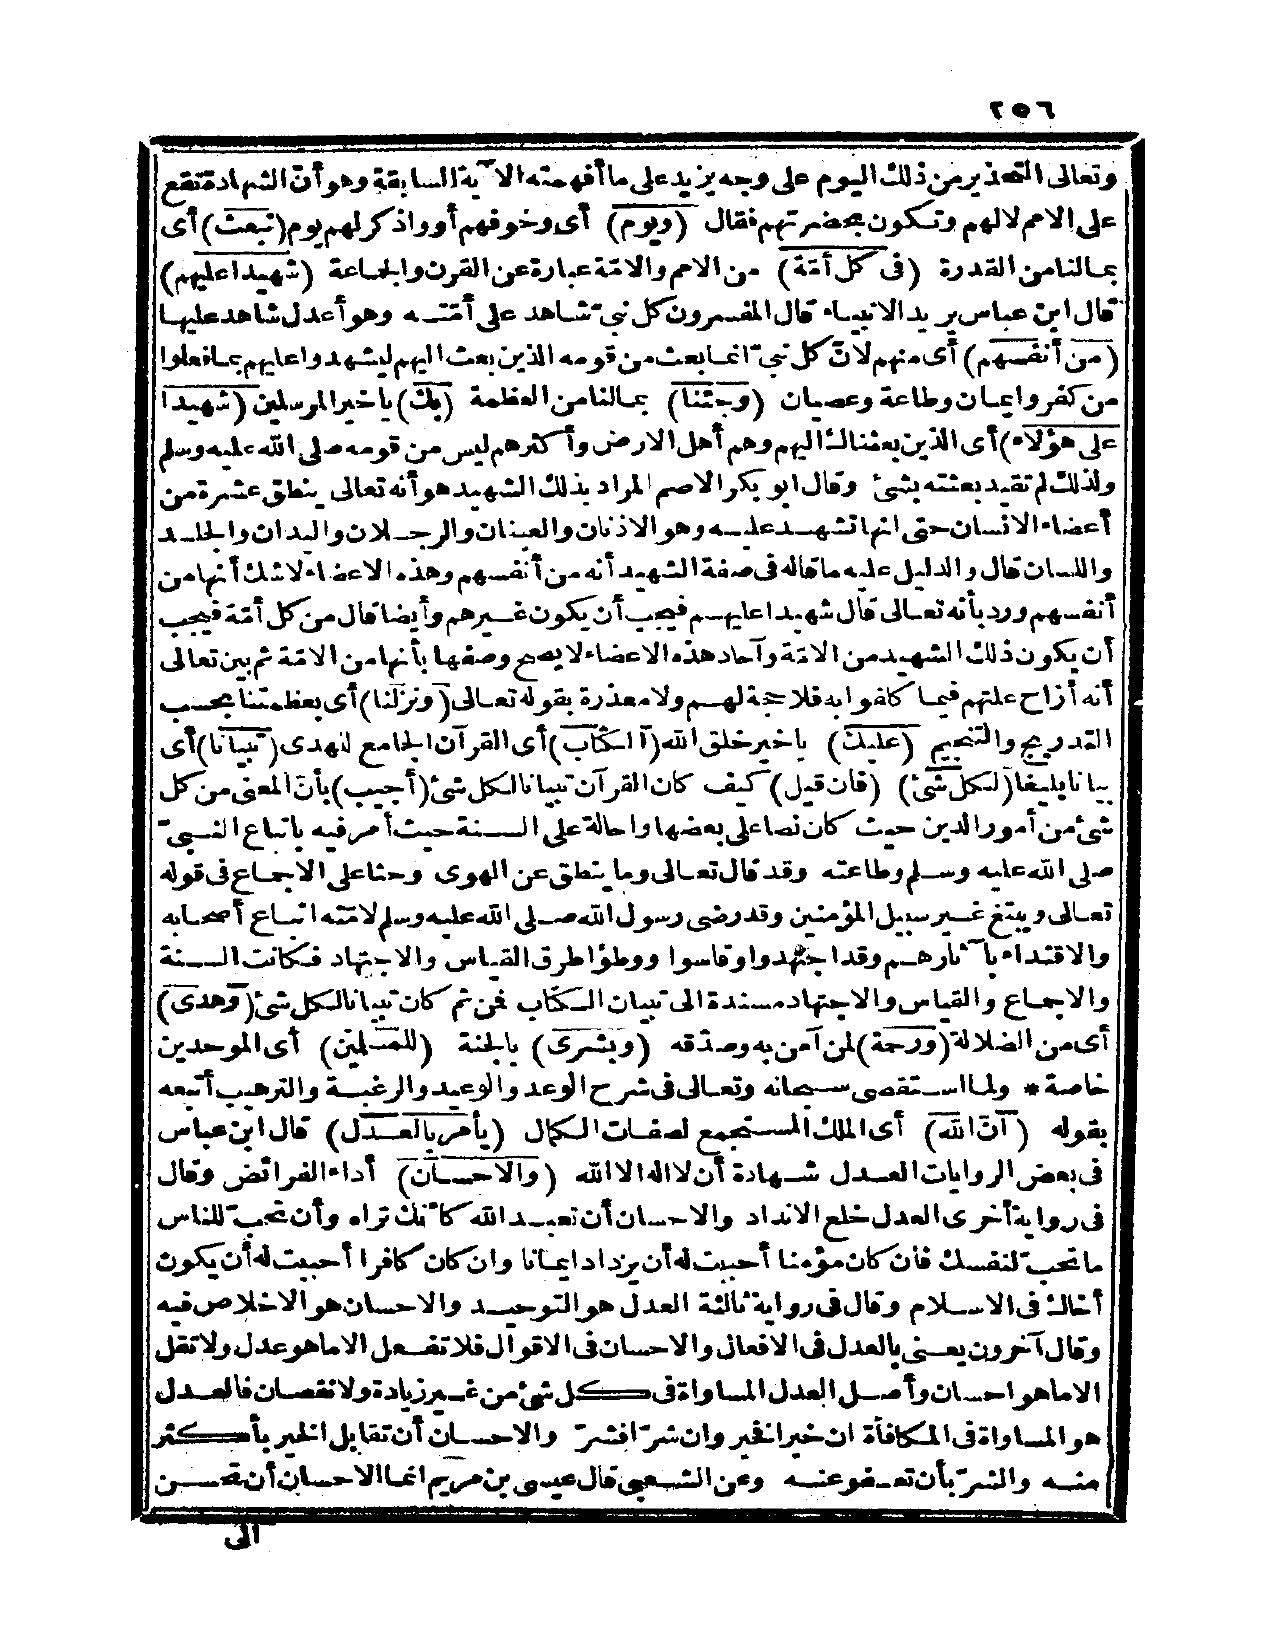 ٢٥٦
وتعالى التحذير من ذلك اليوم على وجه يزيد على ما أفهمته الآية السابقة وهو أن الشهادة تقع
على الامم لالهم وتكون بحضرتهم فقال (ويوم) أى وخوفهم أو واذكر لهم يوم (نبعث) أى
بمالنا من القدرة (فى كل أمّة) من الامم والامّة عبارة عن القرن والجماعة (شهيدا عليهم)
قال ابن عباس يريد الانبياء قال المفسرون كل نبىّ شاهد على أمّته وهو أعدل شاهد عليها
(من أنفسهم) أى منهم لانّ كل نبىّ انما بعث من قومه الذين بعث اليهم ليشهدوا عليهم بما فعلوا
من كفر وايمان وطاعة وعصيان (وجئنا) بمالنا من العظمة (بك) يا خير المرسلين (شهيدا
على هؤلاء) أى الذين بعثناك اليهم وهم أهل الارض وأكثرهم ليس من قومه صلى الله عليه وسلم
ولذلك لم تقيد بعثته بشئ وقال ابو بكر الاصم المراد بذلك الشهيد هو أنه تعالى ينطق عشرة من
أعضاء الانسان حتى انها تشهد عليه وهو الاذنان والعينان والرجلان واليدان والجلد
واللسان قال والدليل عليه ما قاله فى صفة الشهيد أنه من أنفسهم وهذه الاعضاء لاشك أنها من
أنفسهم ورد بأنه تعالى قال شهيدا عليهم فيجب أن يكون غيرهم وأيضا قال من كل أمّة فيجب
أن يكون ذلك الشهيد من الامّة وآحاد هذه الاعضاء لا يصح وصفها بأنها من الامّة ثم بين تعالى
أنه أزاح علتهم فيما كلفوا به فلا حجة لهم ولا معذرة بقوله تعالى (ونزلنا) أى بعظمتنا بحسب
التدريج والتنجيم (عليك) يا خير خلق الله (الكتاب) أى القرآن الجامع للهدى (تبيانا) أى
بيانا بليغا (لكل شئ) (فان قيل) كيف كان القرآن تبيانا لكل شئ (أجيب) بأن المعنى من كل
شئ من أمور الدين حيث كان نصا على بعضها واحالة على السنة حيث أمر فيه باتباع النبىّ
صلى الله عليه وسلم وطاعته وقد قال تعالى وما ينطق عن الهوى وحثا على الاجماع فى قوله
تعالى ويتبغ غير سبيل المؤمنين وقد رضى رسول الله صلى الله عليه وسلم لامّته اتباع أصحابه
والاقتداء بآثارهم وقد اجتهدوا وقاسوا ووطؤا طرق القياس والاجتهاد فكانت السنة
والاجماع والقياس والاجتهاد مسندة الى تبيان الكتاب فمن ثم كان تبيانا لكل شئ (وهدى)
أى من الضلالة (ورحمة) لمن آمن به وصدّقه (وبشرى) بالجنة (للمسلمين) أى الموحدين
خاصة * ولما استقصى سبحانه وتعالى فى شرح الوعد والوعيد والرغبة والترهيب أتبعه
بقوله (انّ الله) أى الملك المستجمع لصفات الكمال (يأمر بالعدل) قال ابن عباس
فى بعض الروايات العدل شهادة أن لا اله الا الله (والاحسان) أداء الفرائض وقال
فى رواية أخرى العدل خلع الانداد والاحسان أن تعبد الله كأنك تراه وأن تحبّ للناس
ما تحبّ لنفسك فان كان مؤمنا أحببت له أن يزداد ايمانا وان كان كافرا أحببت له أن يكون
أخاك فى الاسلام وقال فى رواية ثالثة العدل هو التوحيد والاحسان هو الاخلاص فيه
وقال آخرون يعنى بالعدل فى الافعال والاحسان فى الاقوال فلا تفعل الا ماهو عدل ولا تقل
الا ماهو احسان وأصل العدل المساواة فى كل شئ من غير زيادة ولا نقصان فالعدل
هو المساواة فى المكافأة ان خيرا فخير وان شرّا فشرّ والاحسان أن تقابل الخير بأكثر
منه والشرّ بأن تعفو عنه وعن الشعبى قال عيسى بن مريم انما الاحسان أن تحسن
الى